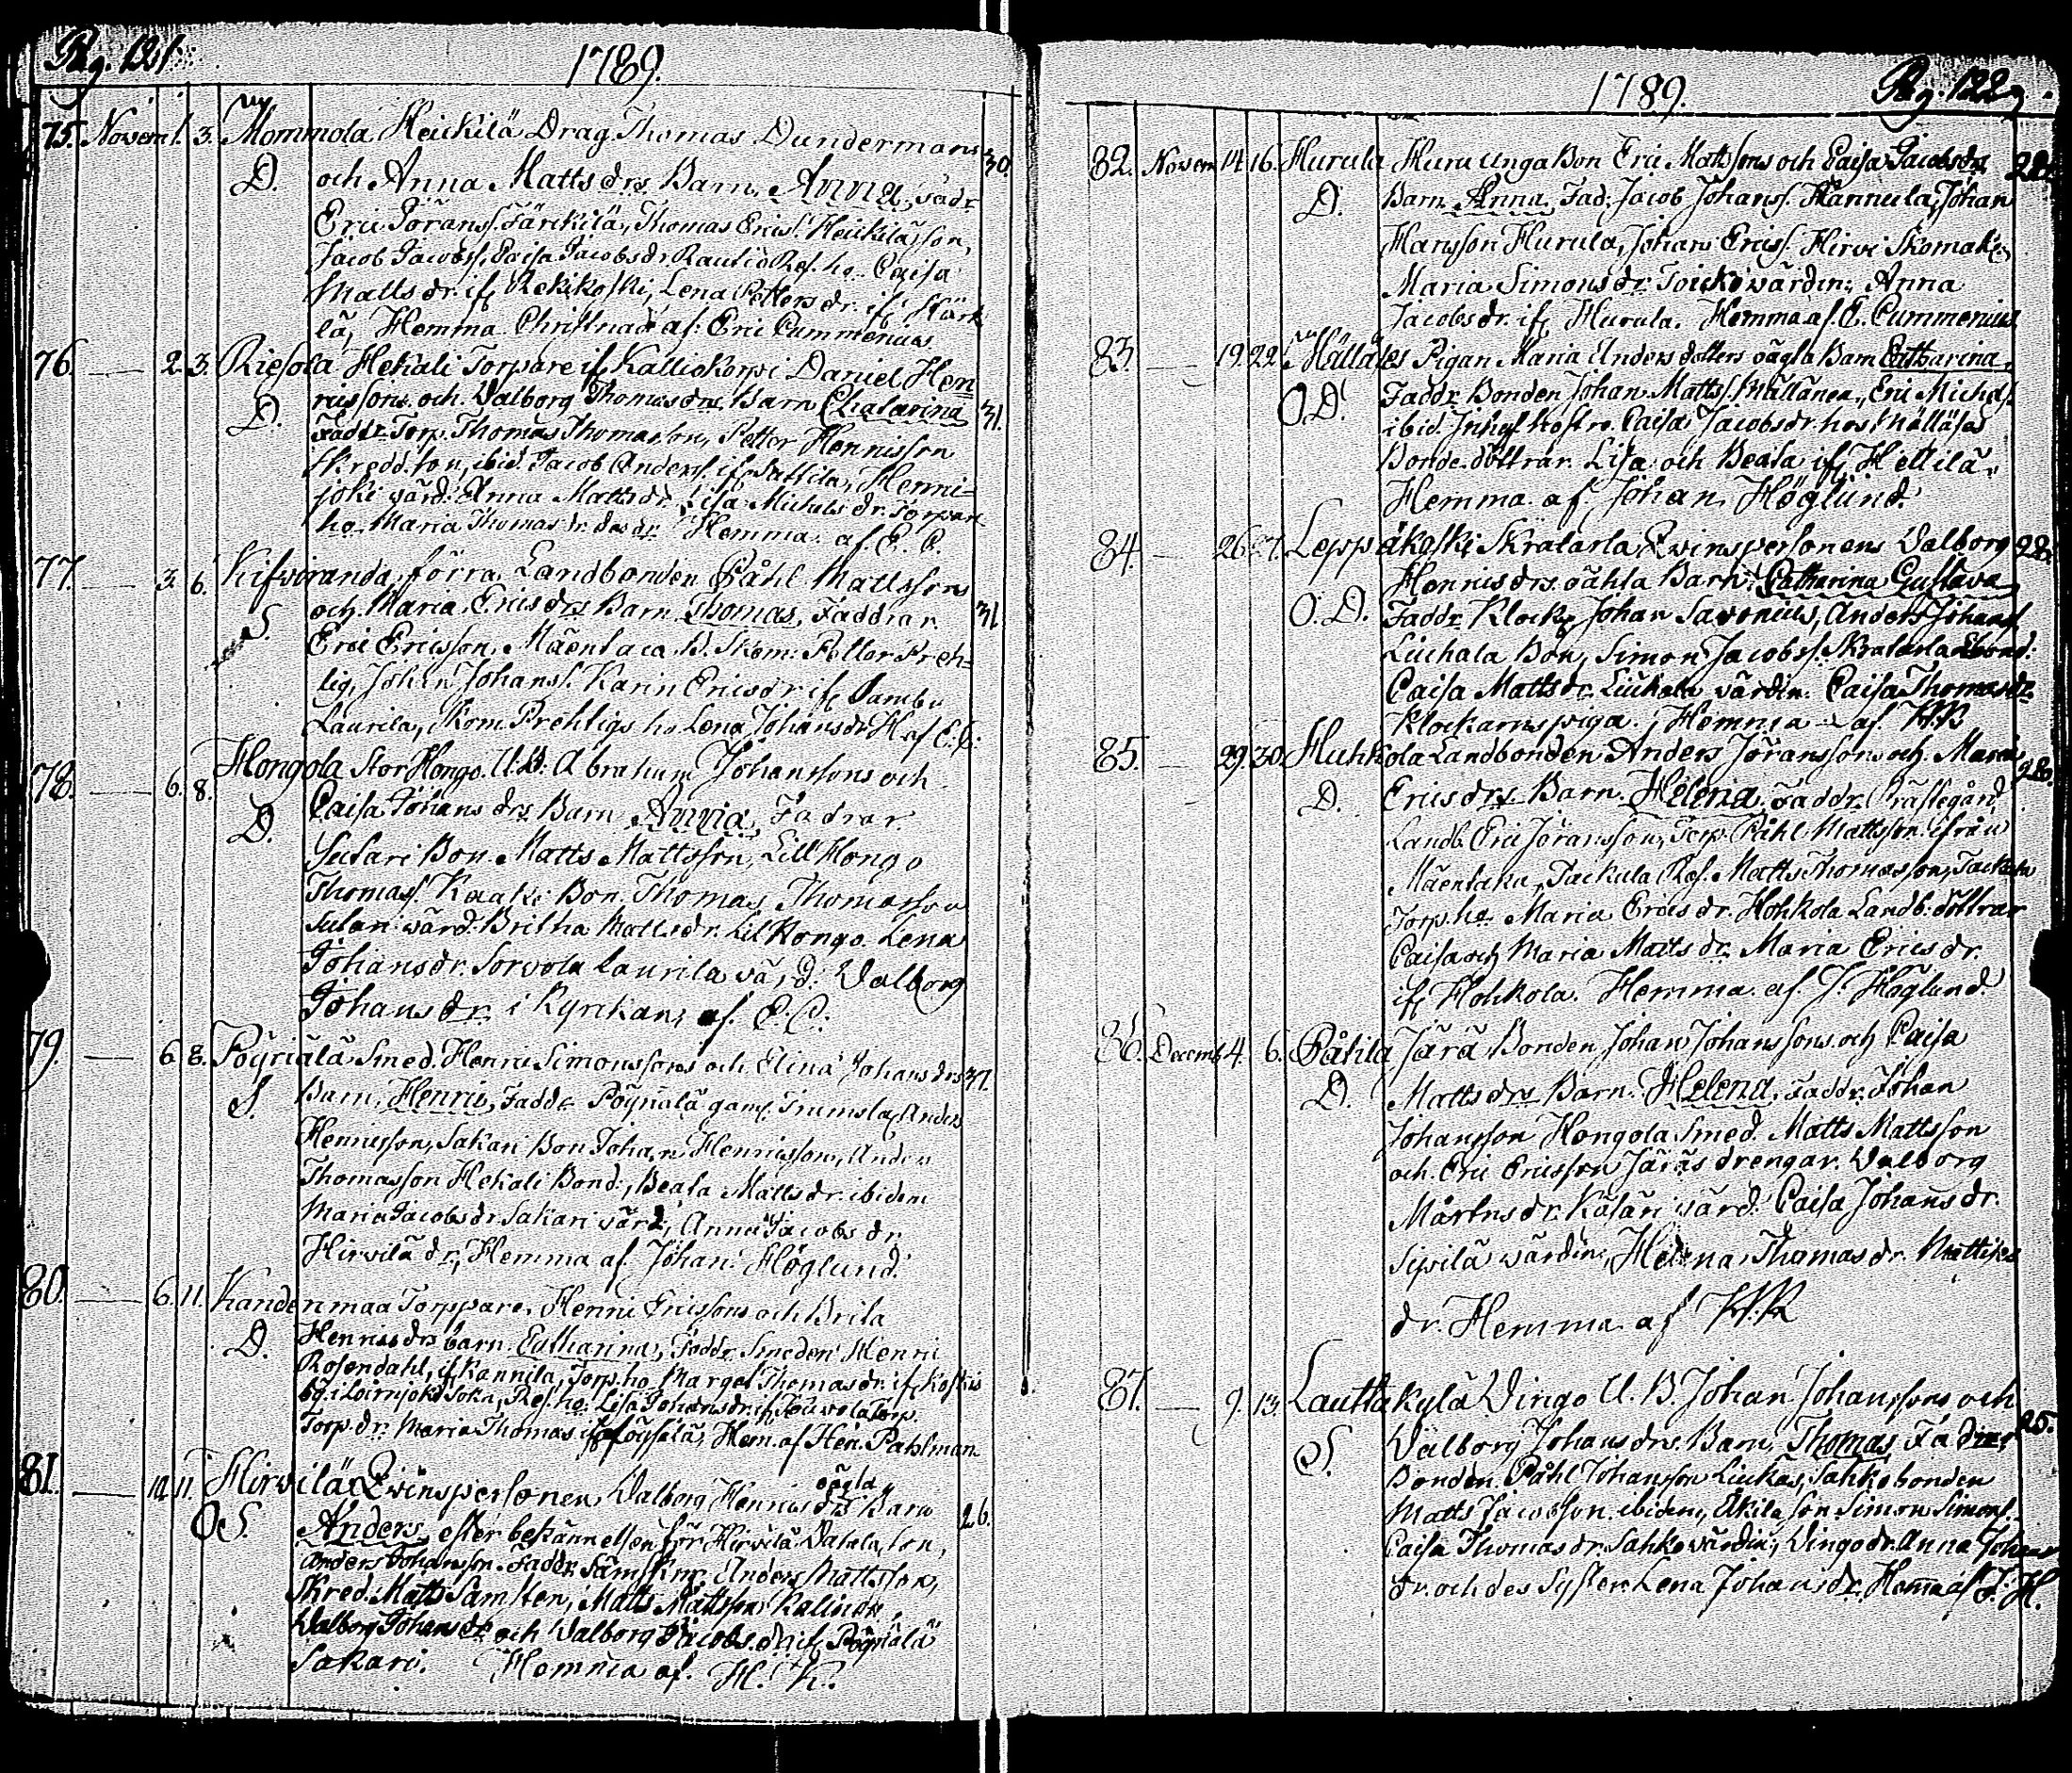 Pag. 121.
1789.
75. Novem 1. 3. Mommola Heickilä Drag. Thomas Dundermans 30.
D. och Anna Matts drs Barn, Anna, Fadr
Eric Göranss. Färickilä, Thomas Erics. Heickiläs son,
Jacob Jacobss, Caisa Jacobs dr. Rautio Ref. ho. Caisa
Matts dr. if. Rekikoski, Lena Petters dr. if. Härk
lä, Hemma Christnadt af: Eric Cummenius.
76. — 2. 3. Riesola Hekali Torpare if. Kalliokorpi Daniel Hen
D. ricssons och Walborg Thomas drs Barn Chatarina 31.
Faddr Torp. Thomas Thomasson, Petter Henricsson
Skredd. son, ibid. Jacob Anderss. if. Henni-
joki värd: Anna Matts dr. Lisa Michels dr. Torpare
ho. Maria Thomas dr. des dr. Hemma af E. C.
77. — 3. 6. Kifviranda, förra Landbonden Påhl Mattssons
S. och Maria Erics drs Barn Thomas, Faddrar 31
Eric Ericsson, Mäentaca B. Skom: Petter Freh-
lig, Johan Johanss. Karin Erics dr if. Sambu
Laurila, Skom. Prehligs ho Lena Johans dr H. af E. C.
78. — 6. 8. Hongola Stor Hongo. U. B. Abraham Johanssons och
D. Caisa Johans drs Barn Anna, Fadrar
Sutari Bon. Matts Mattsson, Lill Hongo
Thomass. Kaaki Bon. Thomas Thomasson
Sutari värd: Britha Matts dr. Lil Hongo Lena
Johans dr. Sorvola Laurila vä, d: Walborg
Johans dr. i Kyrckan, af E. C.
79. — 6. 8. Pöyriälä Smed. Henric Simonssons och Elina Johans drs 37.
S. Barn, Henric, Faddr Pöyriälä gam. Anders
Henricsson, Sakari Bon Johan Henricsson, Anders
Thomasson Hekali Bond:, Beata Matts dr. ibidem
Maria Jacobs dr. Sakari värd, Anna Jacobs dr.
Hirvilä dr, Hemma af. Johan Höglund.
80. — 6. 11. Kandenmaa Torppare, Henric Ericssons och Brita
D. Henrics drs barn. Catharina, Faddr Smeden Henric
Rosendahl, if. Kannila, Torp. ho. Marget Thomas dr. if. Koskis
by i Loimjoki Sokn, Ref. ho: Lisa Johans dr. if. Torp.
Torp. dr. Maria Thomas if. Pöysälä, Hem. af Hen. Pahlman
81. — 10. 11. Hirvilä Qvinspersonen, Walborg Henrics drs oägta Barn
O S. Anders, efter bekännelsen för Hirvilä son, 26.
Anders Johansson. Faddr. Sämskmr. Anders Mattsson,
Skred. Matts Samsten, Matts Mattsson
Walborg Johans dr. och Walborg Jacobs dr if. Pöyriälä
Sakari. Hemma af. H. K.
1789.
Pag. 122.
82. Novem 14. 16. Hurula Huru unga Bon Eric Mattssons och Caisa Jacobs drs
D. Barn Anna, Fad: Jacob Johanss. Hannula, Johan
Hansson Hurula, Johan Ericss. Hirvi Skomak.
Maria Simons dr. Toicko värdin, Anna
Jacobs dr. if. Hurula. Hemma af. E. Cummenius.
83. — 19. 22. Mälläläs Pigan Maria Anders dotters oägta Barn Catharina,
O D. Faddr Bonden Johan Matts. Mällänen, Eric Michels.
ibid. Inhys hostro. Caisa Jacobs dr. hos Mälläläs
Bonde döttrar. Lisa och Beata if. Hettilä,
Hemma af Johan Höglund.
84. — 26. 27. Leppäkoski Skratarla, Qvinspersonens Walborg 28.
O. D. Henrics drs. oächta Barn: Catharina Gustava
Faddr Klock, Johan Savonius, Anders Johans
Liuhala Bon, Simon Jacobss. Skratarla
Caisa Matts dr. Liuhala värdin. Caisa Thomas dr.
Klockarns piga. Hemma af
85. — 29. 30. Huhkola Landbonden Anders Joranssons och Maria 28.
D. Erics drs Barn. Helena. Faddr. Prästegård
Landb. Eric Joransson, Torp. Påhl Mattsson ifrån
Mäentaka, Tackula Ref. Matts Thomasson, Tackula
Torp. ho. Maria Erics dr. Hohkola Landb: döttrar
Caisa och Maria Matts dr. Maria Erics dr.
if. Hohkola. Hemma af. J. Höglund.
86. Decemb 4. 6. Påtila Järä Bonden Johan Johanssons och Caisa
D. Matts drs Barn. Helena, Faddr. Johan
Johansson Hongola Smed. Matts Mattsson
och Eric Ericsson Järäs drengar. Walborg
Mårtens dr. Käsäri värd. Caisa Johans dr.
Sipilä värdin, Helena Thomas dr. Mattika
dr. Hemma af
87. — 9. 13. Lauttakylä Wingo U. B. Johan Johanssons och 25.
S. Walborg Johans drs. Barn, Thomas, Fadrar
Bonden Påhl Johansson Liukas, Sahko bonden
Matts Jacobsson ibidem, Äkilä son Simon Simons.
Caisa Thomas dr. Sahko värdin, Wingo dr. Anna Johans
dr. och des Syster Lena Johans dr. Hemma af J. H.